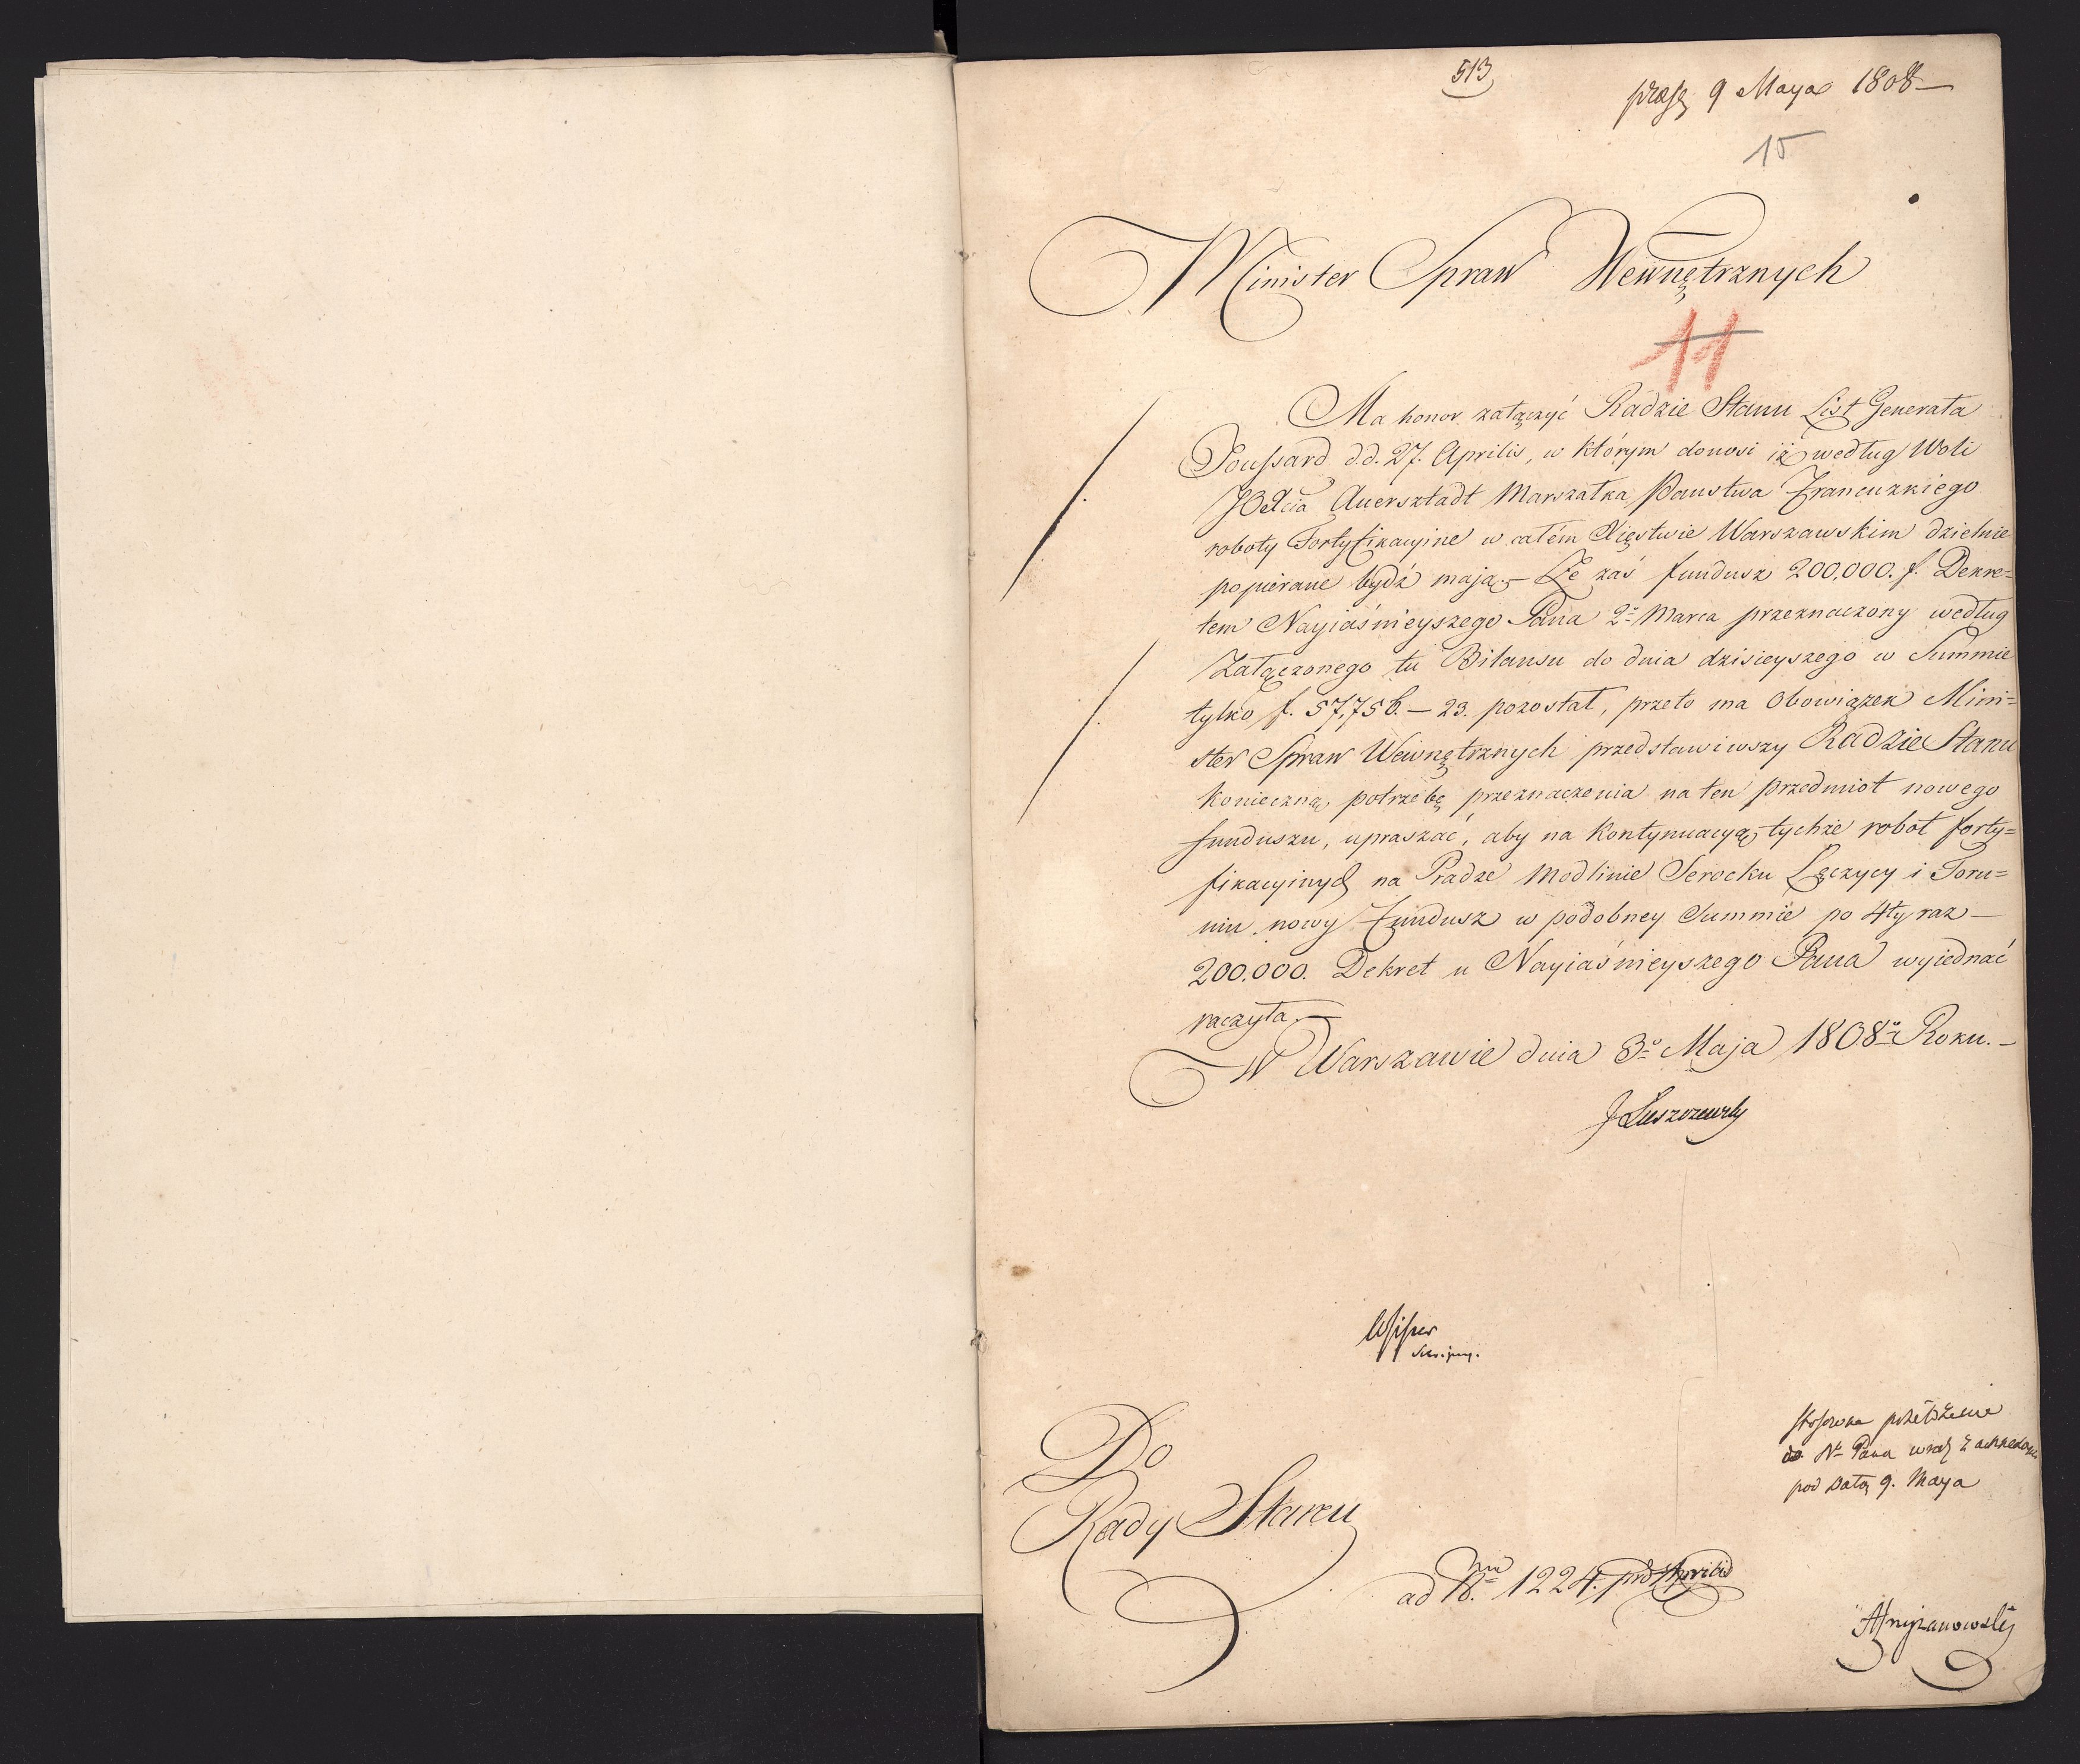 513
9 Maya 1808
15
Minister Spraw Wewnętrznych
11
Ma honor załączyć Radzie Stanu List Generała
Poussard d.d. 27. Aprilis, w którym donosi iż według Woli
JO Xcia Auersztadt Marszałka Państwa Francuzkiego
roboty Fortyfikacyine w całém Xięstwie Warszawskim dzielnie
popierane bydź mają. – Że zaś fundusz 200,000. f. Dekre=
tem Nayiaśnieyszego Pana 2º Marca przeznaczony według
Załączonego tu Bilansu do dnia dzisieyszego w Summie
tylko f. 57,756. – 23. pozostał, przeto ma Obowiązek Mini=
ster Spraw Wewnętrznych przedstawiwszy Radzie Stanu
konieczną potrzebę przeznaczenia na ten przedmiot nowego
funduszu, upraszać, aby na kontynuacyą tychże robot forty=
fikacyinych na Pradze Modlinie Serocku Łęczycy i Toru=
niu nowy Fundusz w podobney Summie po 4ty raz –
200.000. Dekret u Nayiaśnieyszego Pana wyiednać
raczyła. –
W Warszawie dnia 3º Maja 1808º Roku. –
J Łuszczewski
Do
Rady Stanu
stosowne
do Nº Pana wraz z
pod datą 9. Maya
ad Nrum 1224. pro Aprilis